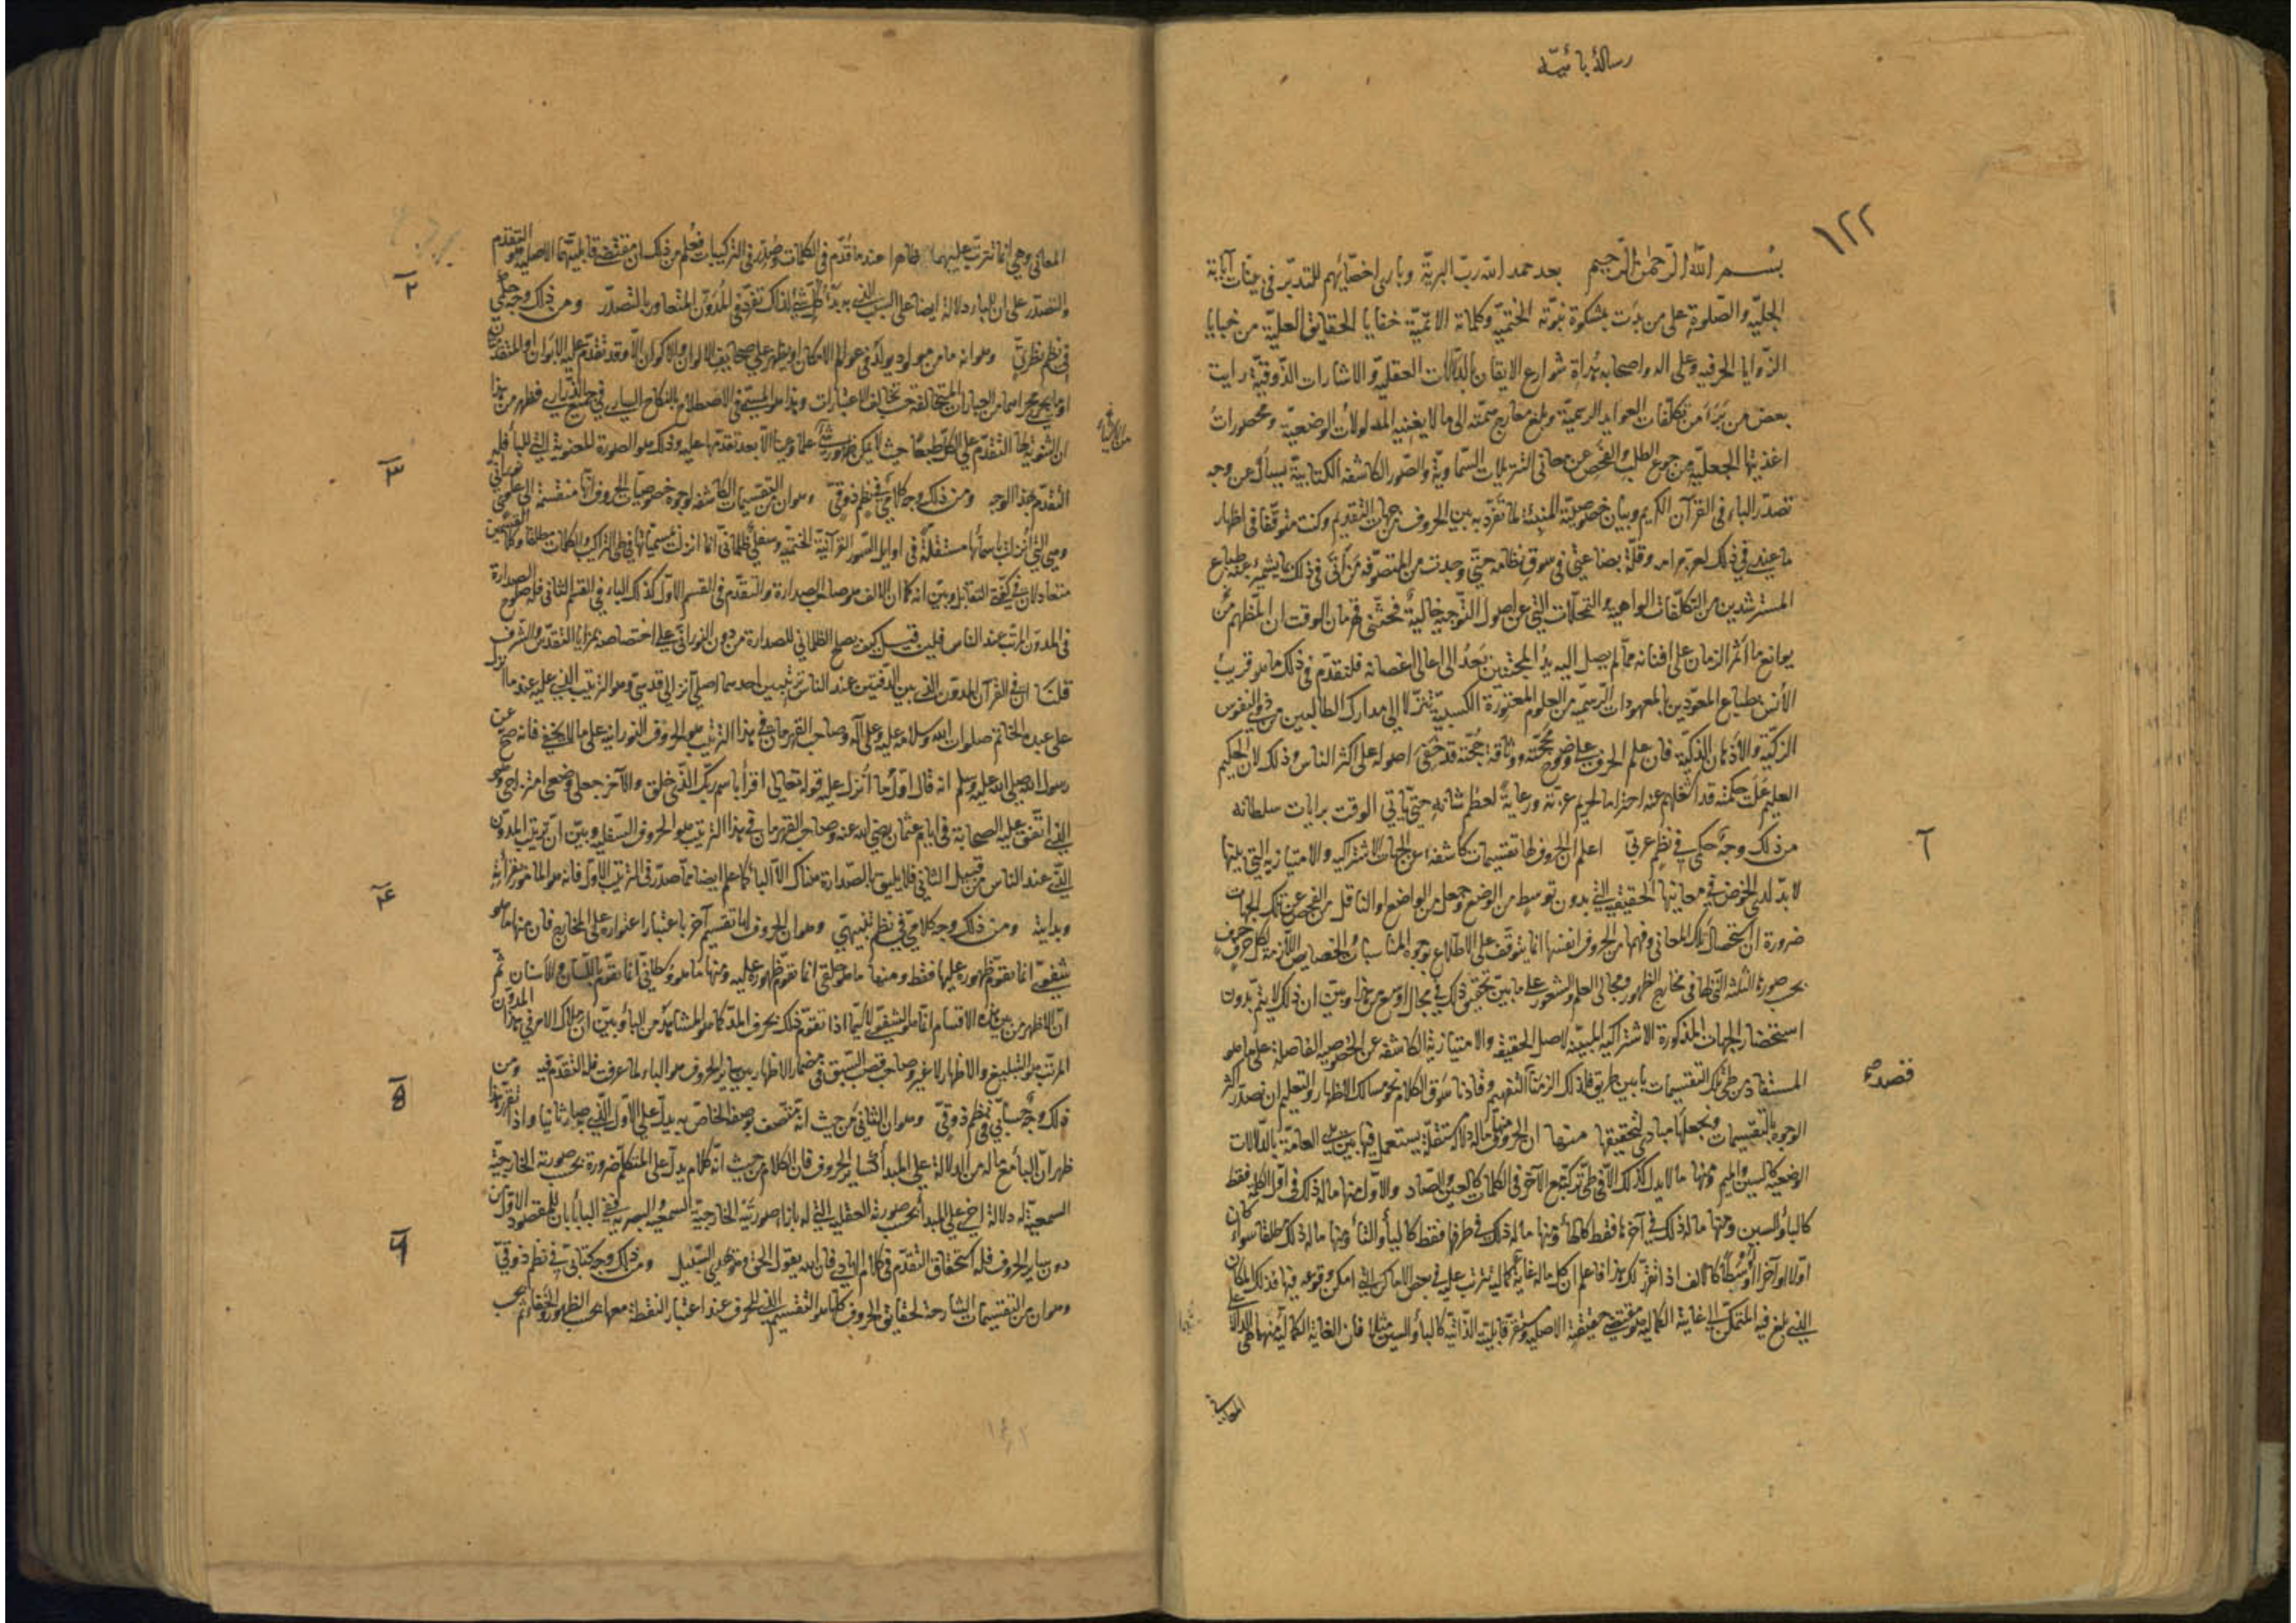 رسالهٔ بائیّه
١٢٢
بسم الله الرحمن الرحيم بعد حمد الله ربّ البريّة وبارى اخصّائهم للتدبّر فى بيّنات آياته
الجليّة والصّلوة على من بدت بمشكوة نبوّته الختميّة وكلماته الاتميّة خفايا الحقايق العليّة من خبايا
الزّوايا الحرفيه وعلى اله واصحابه هداة شوارع الايقان بالدّلالات العقليّة والاشارات الذّوقيّة رايت
بعض من تبرّأ من تكلّفات العوايد الرسميّة وبلغ معارج همّته الى ما لا يغنيه المدلولات الوضعيّة ومحصورات
اغذيتها الجعليّة من جوع الطلب والفحص عن معانى التنزيلات السّماويّة والصّور الكاشفة الكتابيّة يسأل عن وجه
تصدّر الباء فى القرآن الكريم وبيان خصوصيّته المنبئة لما تفرّد به بين الحروف من جهات التقديم وكنت متوقّفا فى اظهار
ما عندى فى ذلك لعزّة مرامه وقلّة بضاعتى فى سوق نظامه حتّى وجدت من المتصوّفة من أتى فى ذلك بما يشمئزّ عنه طباع
المسترشدين من التكلّفات الواهية والتمحّلات التى عن اصول التّوجيه خالية فحثّنى قهرمان الوقت ان اظهرهم من
يوانع ما أثمر الزمان على افنانه ممّا لم يصل اليه يد المجتنين بعد الى اعالى اغصانه فلنقدّم فى ذلك ما هو قريب
الأنس بطباع المعوّدين بالمعهودات الرسميّة من العلوم المعزوزة الكسبيّة تنزّلا الى مدارك الطالبين من ذوى النفوس
الزكيّة والاذهان الذكيّة فان علم الحرف على وضوح محجّته ووثاقة حجّته قد خفى اصوله على اكثر الناس وذلك لان الحكيم
العليم علت حكمته قد اشغلهم عنه احتراما لحريم عزّته ورعاية لعظم شانه حتّى ياتى الوقت برايات سلطانه
١
من ذلك وجه حكمىّ فى نظم عربىّ اعلم ان الحروف لها تقسيمات كاشفة عن الجهات الاشتراكيه والامتيازيه التى بينها
لا بدّ لدى الخوض فى معانيها الحقيقيه التى بدون توسط من الوضع وجعل من الواضع او الناقل من الفحص عن تلك الجهات
ضرورة ان استحصال تلك المعانى وفهمها من الحروف انفسها انما يتوقف على الاطلاع بوجوه المناسبات والخصايص اللازمة لكل حرف حرف
بحسب صورة الثلثة التى لها فى مخارج الظهور ومجالى العلم والشعور على ما بيّن تحقيق ذلك فى مجال اوسع من هذا وبيّن ان ذلك لا يتمّ بدون
استحضار الجهات المذكورة الاشتراكيه المبيّنة لاصل الحقيقه والامتيازية الكاشفه عن الخصوصيه الفاصلة على ما هو
المستفاد من طىّ تلك التقسيمات يا بين طريق فلذلك الزمنا التفهيم وقادنا سوق الكلام نحو مسالك الاظهار والتعليم ان نصدّر اكثر
قصد صح
الوجوه بالتقسيمات ونجعلها مبادى لتحقيقها منها ان الحروف منها ما له دلالة مستقلّة يستعمل فيها بين العامّة بالدّلالات
الوضعيّة كالسين والميم ومنها ما لا يدل كذلك الّا فى طىّ تركّبه مع الآخر فى الكلمات كالعين والصاد والاوّل منها ما له ذلك فى اوّل الكلمه فقط
كالباء والسين ومنها ما له ذلك فى آخرها فقط كالهاء ومنها ما له ذلك فى طرفها فقط كالياء والتاء ومنها ما له ذلك مطلقا سواء كان
اوّلا او آخرا او وسطا كالالف اذا تقرّر لك هذا فاعلم ان كل ماله غاية كماليه تترتب عليه فى بعض الاماكن التى امكن وقوعه فيها فذلك المكان
الذى بلغ فيه المتمكّن الى غاية الكماليه هو مقتضى حقيقته الاصليه ومستقرّ قابليته الذّاتيه كالباء والسين مثلا فان الغاية الكماليّة منهما هى الدلالة على
المعانى
المعانى وهى انما تترتب عليهما ظاهرا عند ما قدّم فى الكلمات وصدّر فى التركيبات فعلم من ذلك ان مقتضى قابليتهما الاصليه هو التقدّم
٢
والتصدّر على ان للباء دلالة ايضا على السبب الذى به بدأ كل شئ لذلك تفرّد فى المدوّن المتعاور بالتصدّر ومن ذلك وجه حكمى
فى نظم نظرىّ وهو انه ما من مولود يولد فى عوالم الامكان او يظهر على صحايف الالوان والاكوان الّا وقد تقدّم عليه الابوان او المتقدّمان
او ما يجرى مجراهما من العبارات المتخالفة بحسب تخالف الاعتبارات وهذا هو المسمّى فى الاصطلاح بالنكاح السارى فى جميع الذّرارى فظهر من هذا
ان الثنويه لها التقدّم على الكل طبعا حيث لا يمكن ظهور شئ علما وعينا الّا بعد تقدّمها عليه وذلك هو الصورة المعنوية التى للباء فله
٣
التقدّم بهذا الوجه ومن ذلك وجه كلامىّ فى نظم ذوقىّ وهو ان من التقسيمات الكاشفه لوجوه خصوصيات الحروف انّها منقسمة الى علوىّ نورانى
وهى التى أنزلت باسمائها مستقلّة فى اوايل السّور القرآنية الختميّه وسفلىّ ظلمانى انّما انزلت مسمّياتها فى طىّ التراكيب والكلمات مطلقا وكلا القسمين
متعادلان فى كفّتى التقابل وبيّن انه كما ان الالف هو صاحب الصدارة والتقدّم فى القسم الاوّل كذلك الباء فى القسم الثانى فله صلوح الصدارة
فى المدوّن المرتّب عند الناس فلئن قيل كيف يصلح الظلمانى للصدارة من دون النورانى على اختصاصه بمزايا التقدّس والشّرف
قلنا ان فى القرآن المدوّن الذى بين الدفّتين عند الناس ترتيبين احدهما اصلىّ انزالى قدسىّ وهو الترتيب الذى عليه عند ما انزل
على عبده الخاتم صلوات الله وسلامه عليه وعلى آله وصاحب القهرمان فى هذا الترتيب هو الحروف النورانيه على ما لا يخفى فانه صحّ عن
رسول الله صلى الله عليه وسلم انه قال اوّل ما أنزل عليه قوله تعالى اقرأ باسم ربّك الذى خلق والآخر جعلى وضعى امتزاجى وهو
الذى اتّفق عليه الصحابة فى ايام عثمان رضى الله عنه وصاحب القهرمان فى هذا الترتيب هو الحروف السّفليه وبيّن انّ ترتيب المدوّن
الذى عند الناس من قبيل الثانى فلا يليق بالصّدارة هناك الّا الباء كما علم ايضا مما صدّر فى الترتيب الاوّل فانه هو المامور بقرأته
٤
وبدايته ومن ذلك وجه كلامىّ فى نظم تنبيهىّ وهو ان الحروف لها تقسيم آخر باعتبار اعتوارها على المخارج فان منها ما هو
شفوىّ انما يتقوّم ظهوره عليها فقط ومنها ما هو حلقى انما تقوّم ظهوره عليه ومنها ما هو وسطانىّ انما يتقوّم باللّسان والاسنان ثمّ
انّ الاظهر من بين هذه الاقسام انما هو الشفوىّ لا سيّما اذا تقوّم ذلك بحرف المدّ كما هو المشاهد من الباء وبيّن ان ملاك الامر فى هذا المدوّن
المرتّب هو التبليغ والاظهار لا غير وصاحب قصب السّبق فى مضمار الاظهار بين ساير الحروف هو الباء لما عرفت فله التقدّم فيه ومن
٥
ذلك وجه حسابىّ فى نظم ذوقىّ وهو ان الثانى من حيث انّه متّصف بوصفه الخاصّ به يدلّ على الاوّل الذى به صار ثانيا واذا تقرّر هذا
ظهر انّ الباء مع ما له من الدلالة على المبدأ كساير الحروف فان الكلام من حيث انّه كلام يدلّ على المتكلّم ضرورة بحسب صورته الخارجيّة
السمعيّة له دلالة اخرى على المبدأ بحسب صورته العقليه التى له بازاء صورتيه الخارجية السمعيه والبصريه ففى الباء ابان للمقصود الاوّل من
٦
دون ساير الحروف فله استحقاق التقدّم فى كلام الهادى فان الله يقول الحق وهو يهدى السّبيل ومن ذلك وجه كتابىّ فى نظم ذوقىّ
وهو ان من التقسيمات الشارحة لحقايق الحروف كلّها هو التقسيم الذى للحرف عند اعتبار النقطة معها بحسب الظهور والخفاء ثم بحسب